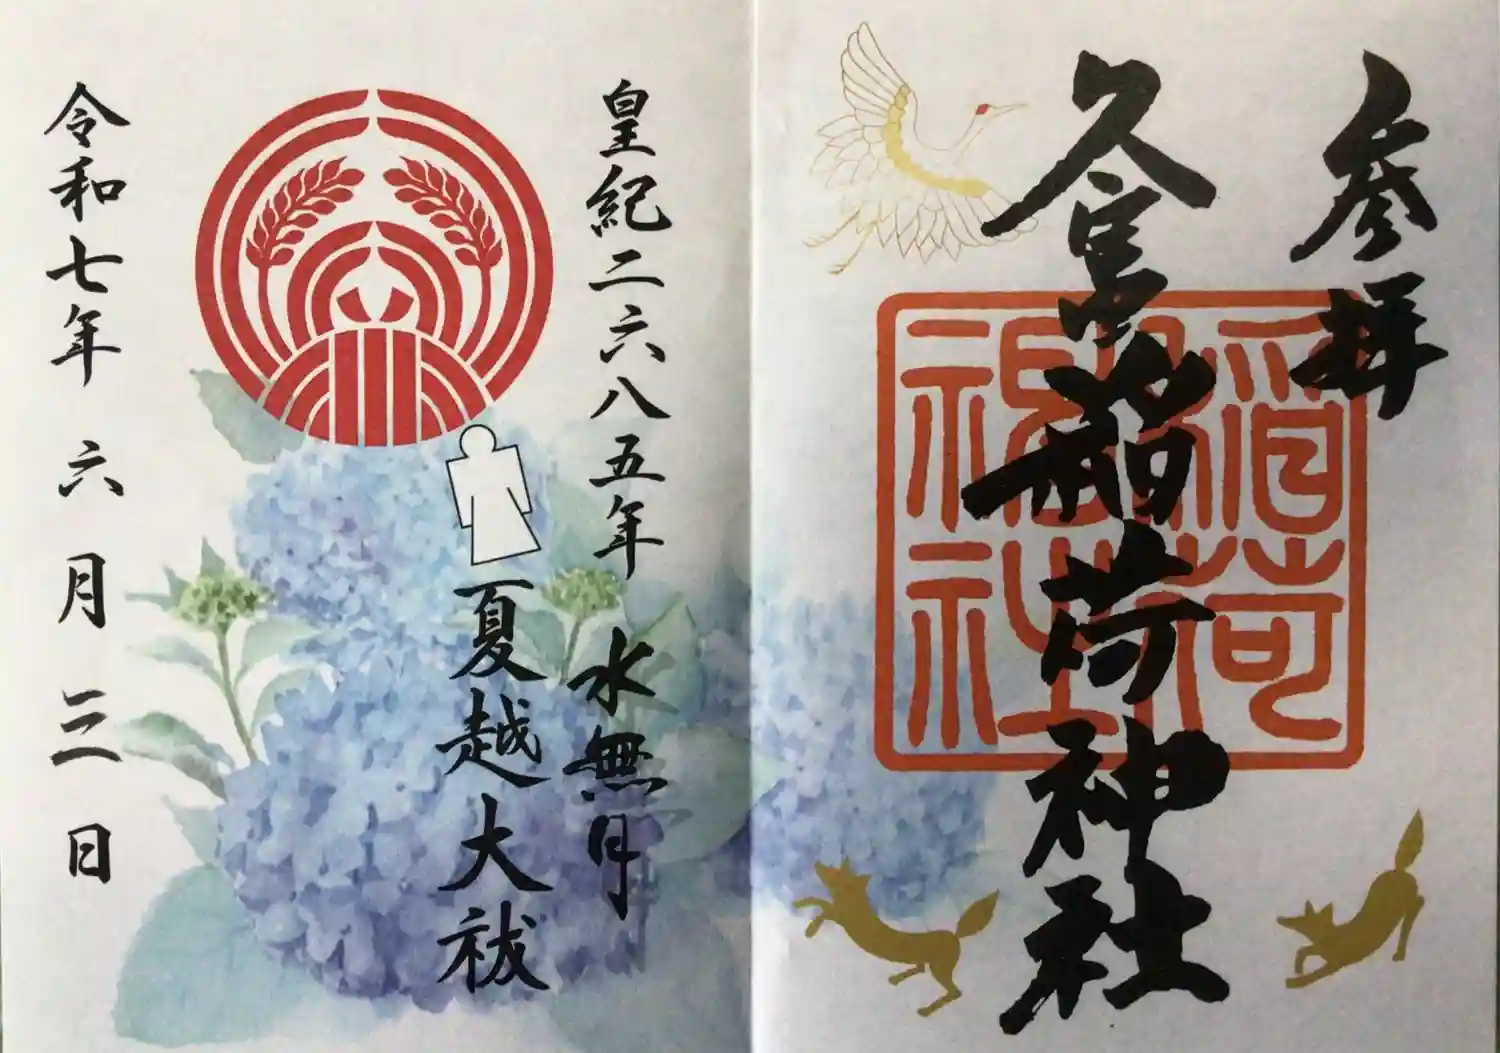 参拝
稲荷神社
稲荷
神社
皇紀二六八五年 水無月
夏越大祓
令和七年 六月三日